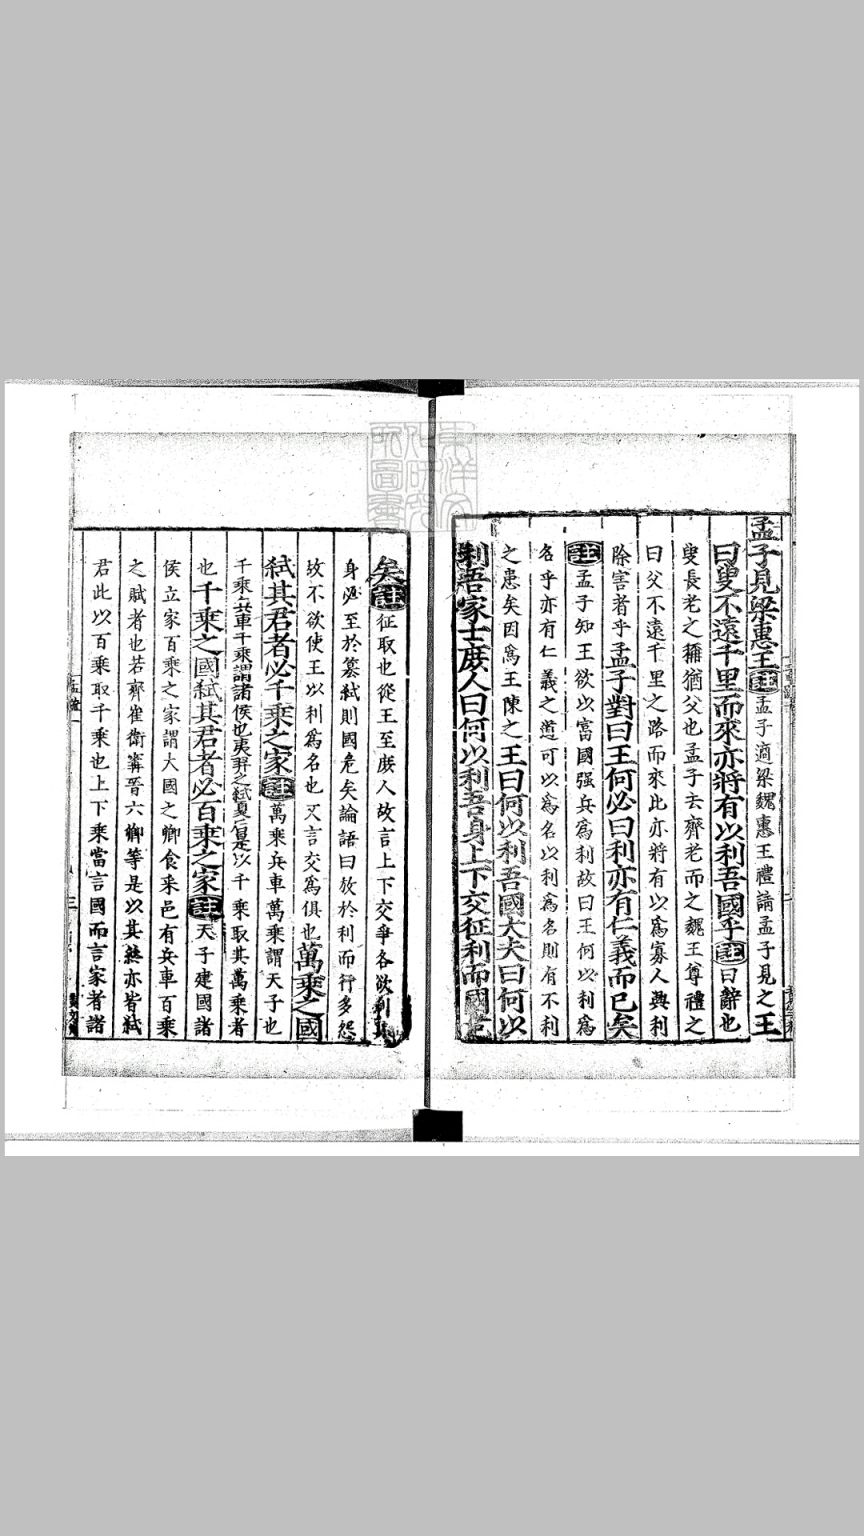 孟子見梁惠王註孟子適梁魏惠王禮請孟子見之王
曰叟不遠千里而來亦將有以利吾國乎註曰辭也
叟長老之稱猶父也孟子去齊老而之魏王尊禮之
曰父不遠千里之路而來此亦將有以爲寡人興利
除害者乎孟子對曰王何必曰利亦有仁義而已矣
註孟子知王欲以富國强兵爲利故曰王何以利爲
名乎亦有仁義之道可以爲名以利爲名則有不利
之患矣因爲王陳之王曰何以利吾國大夫曰何以
利吾家士庶人曰何以利吾身上下交征利而國危
矣註征取也從王至庶人故言上下交爭各欲利其
身必至於篡弑則國危矣論語曰放於利而行多怨
故不欲使王以利爲名也又言交爲俱也萬乘之國
弑其君者必千乘之家註萬乘兵車萬乘謂天子也
千乘兵車千乘謂諸侯也夷羿之弑夏后是以千乘取其萬乘者
也千乘之國弑其君者必百乘之家註天子建國諸
侯立家百乘之家謂大國之卿食采邑有兵車百乘
之賦者也若齊崔衞甯晉六卿等是以其終亦皆弑
君此以百乘取千乘也上下乘當言國而言家者諸
三